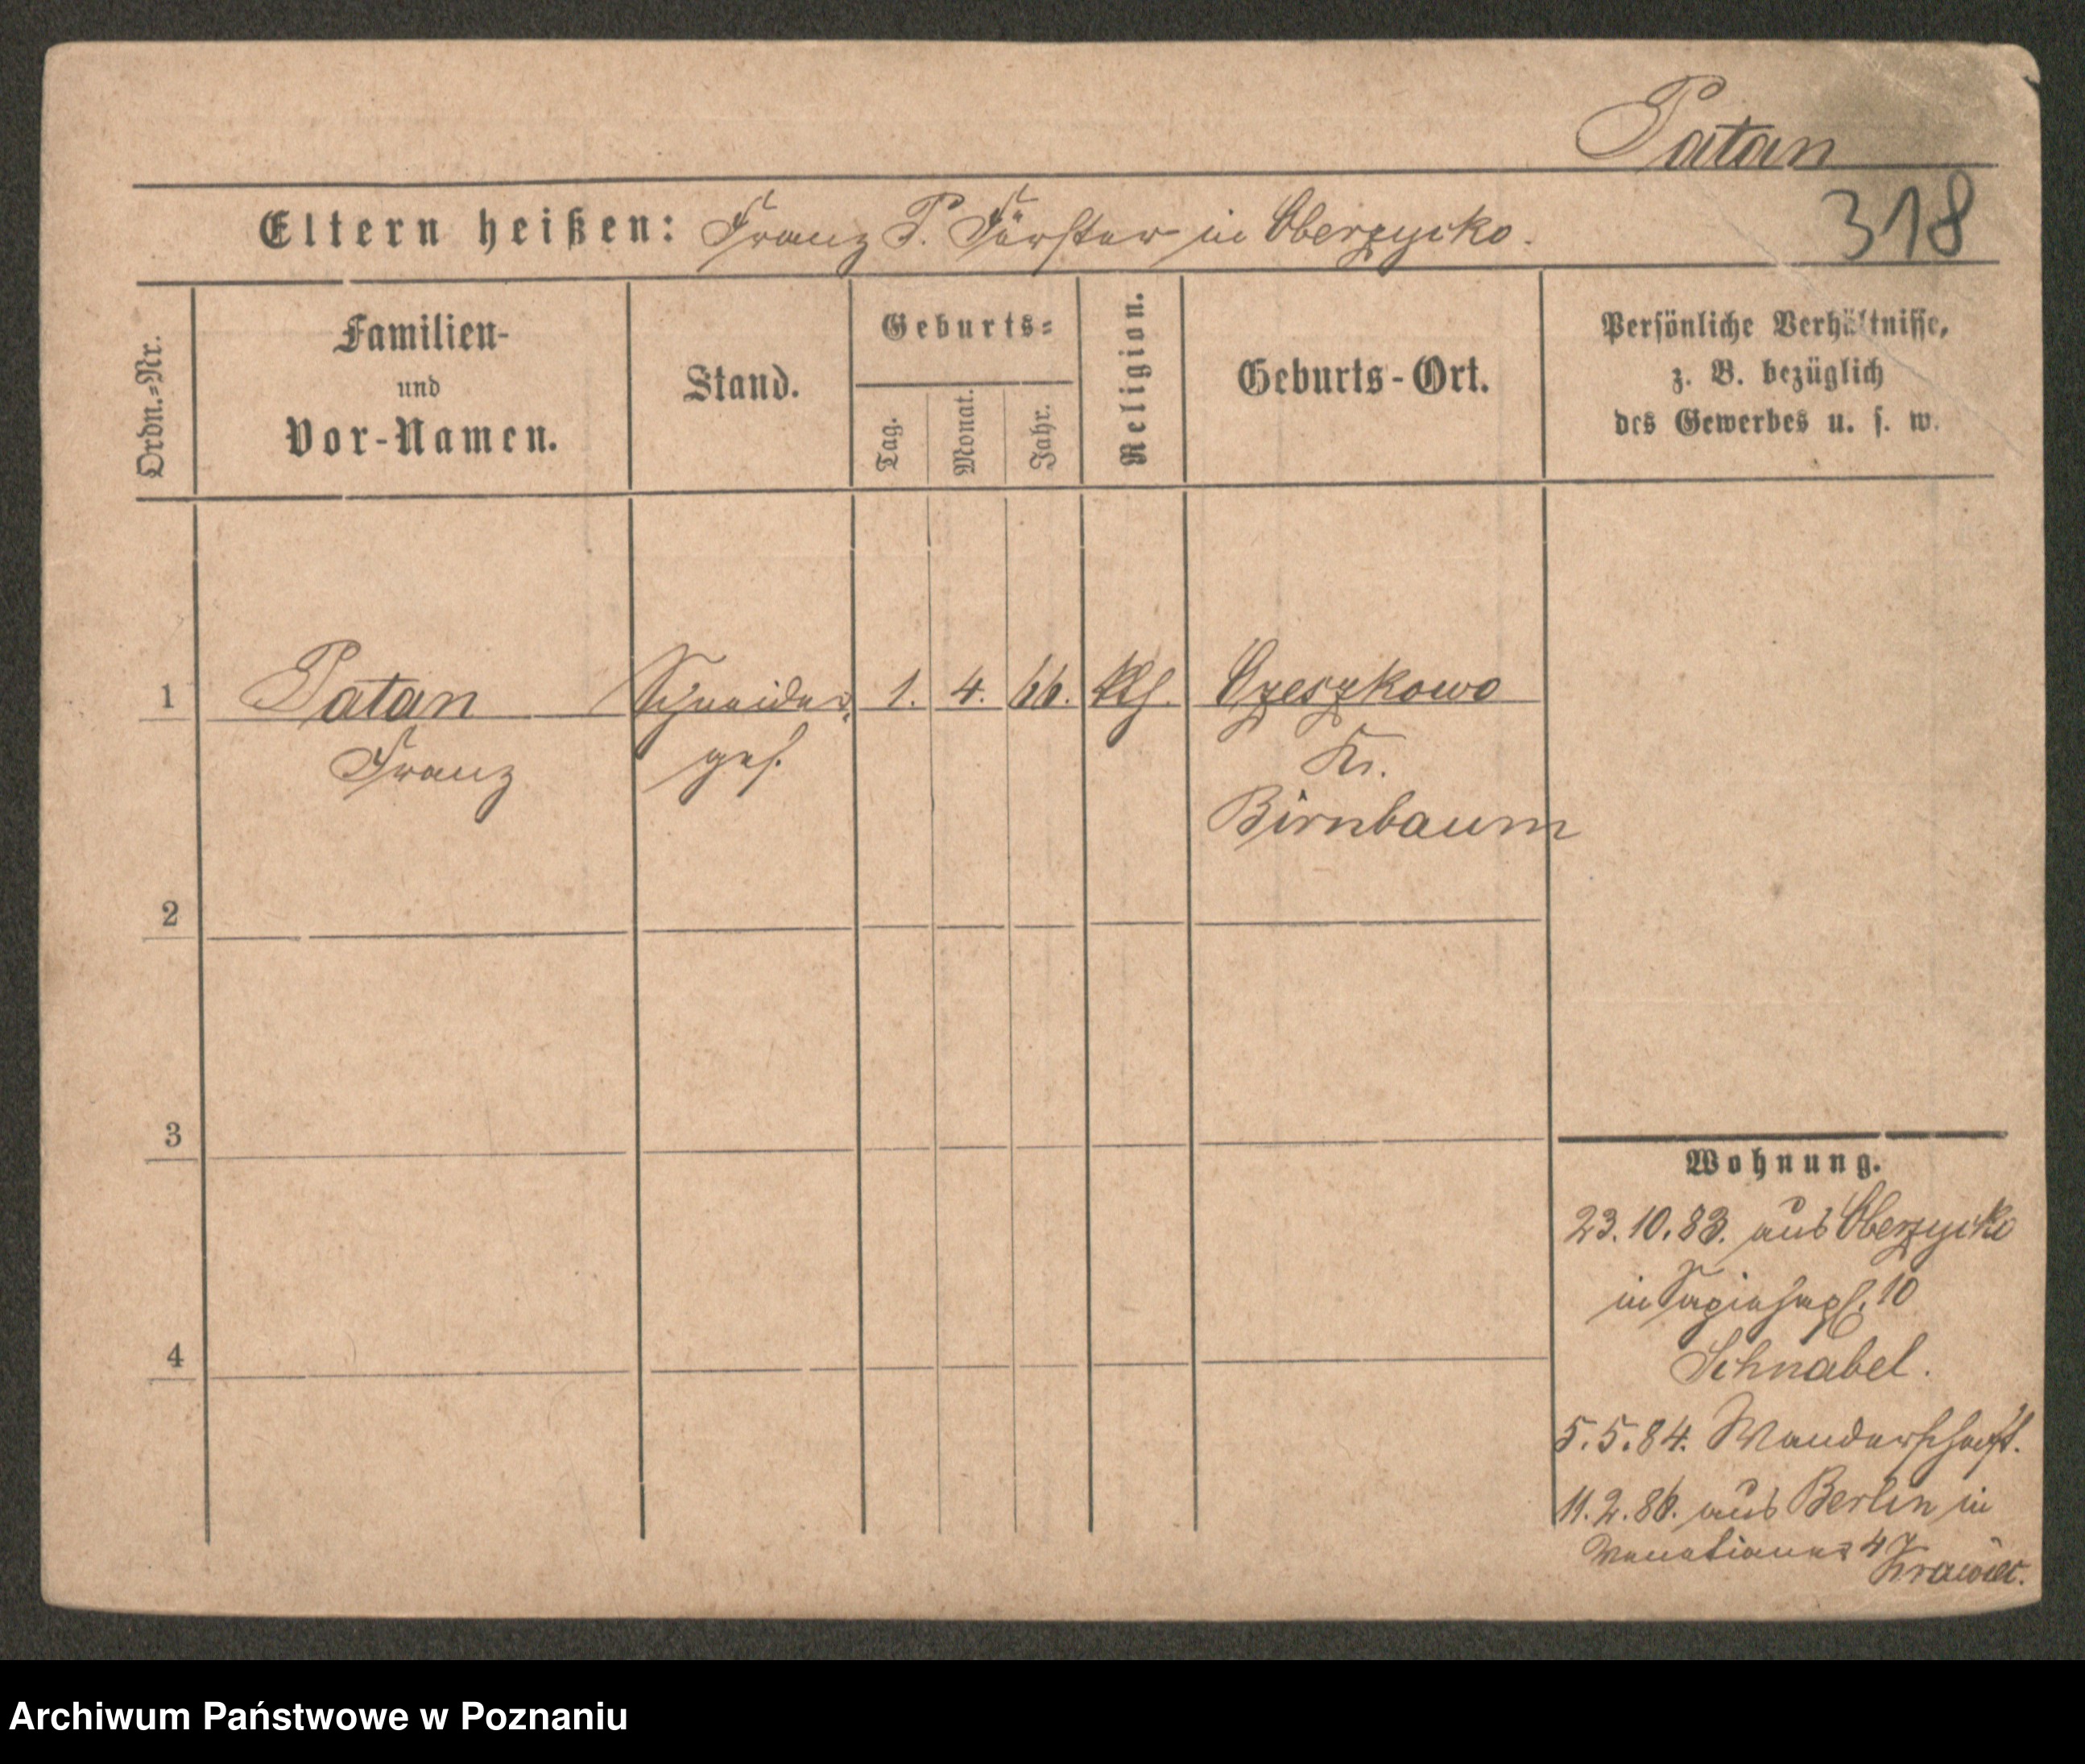 Patan
318
Eltern heißen: Franz P. Förster in Obersycko.
Ordn.-Nr.
Familien-
und
Vor-Namen.
Stand.
Geburts-
Tag.
Monat.
Jahr.
Religion.
Geburts-Ort.
Persönliche Verhältnisse,
z. B. bezüglich
des Gewerbes u. s. w.
1 Patan Schneider 1. 4. 66. Kth. Czeszkowo
Franz ges. Kr.
Birnbaum
2
3
4
Wohnung.
23.10.83. aus Obersycko
in Sapiehapl. 10
Schnabel.
5.5.84. Wanderschaft.
11.2.86. aus Berlin in
4 Krawiec.
Archiwum Państwowe w Poznaniu